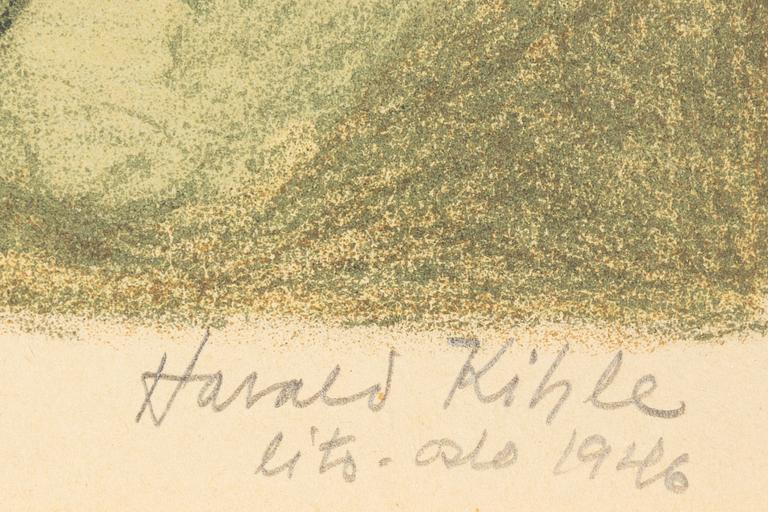 Harald Kihle
lito - oslo 1946